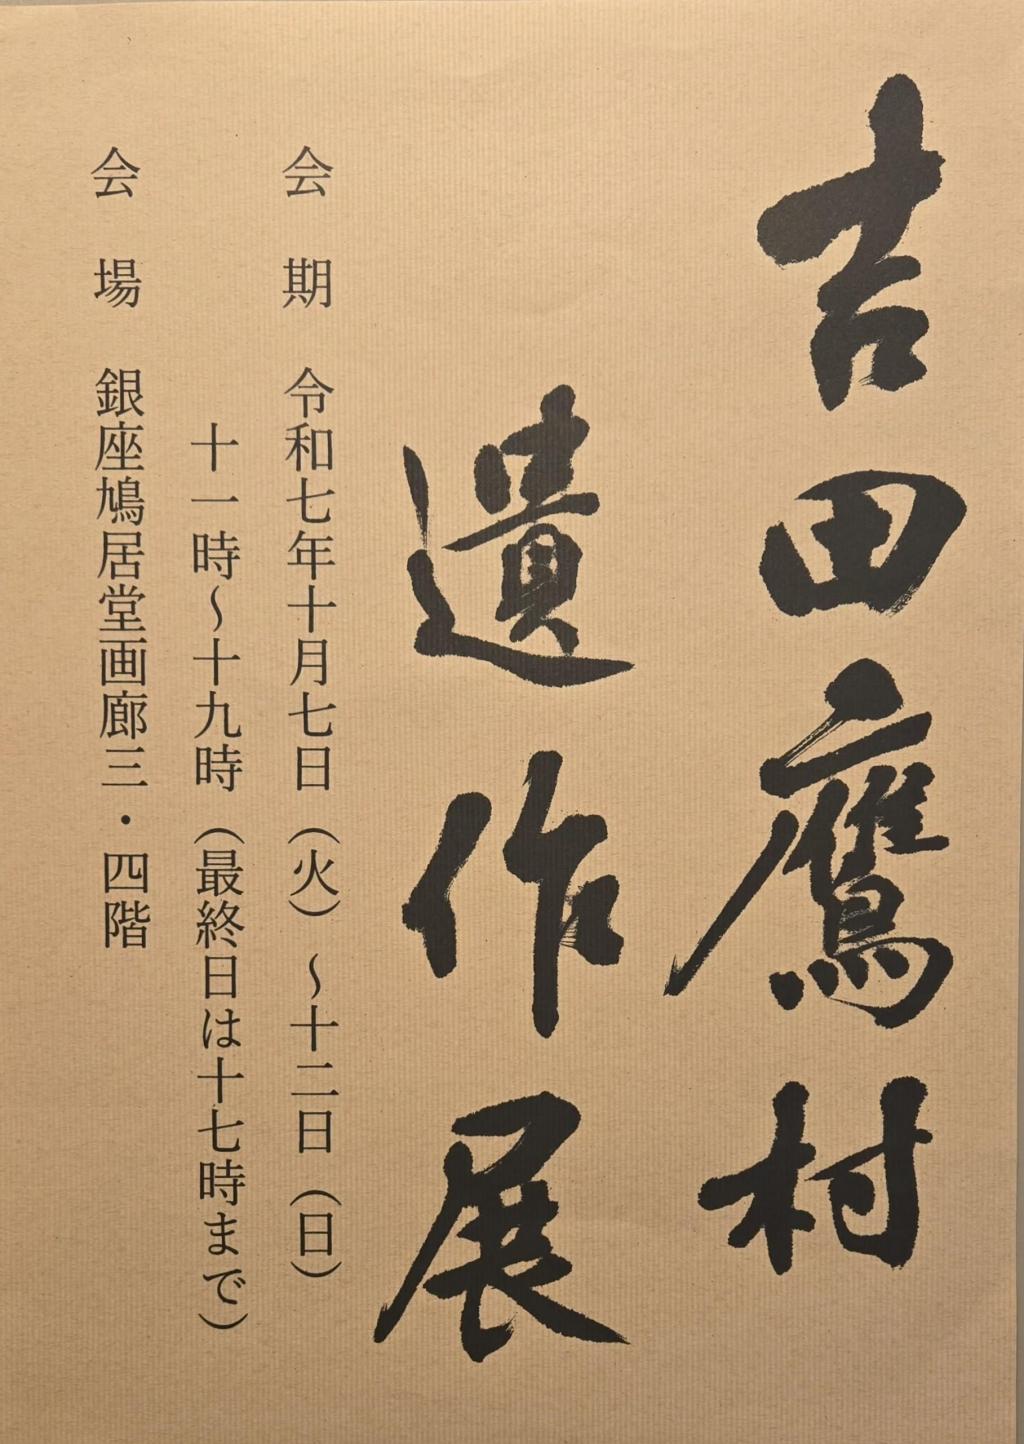 吉田鷹村
遺作展
会 期 令和七年十月七日（火）〜十二日（日）
十一時〜十九時（最終日は十七時まで）
会 場 銀座鳩居堂画廊三・四階